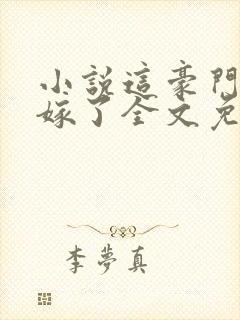 小說這豪門
嫁了全文免
李夢真